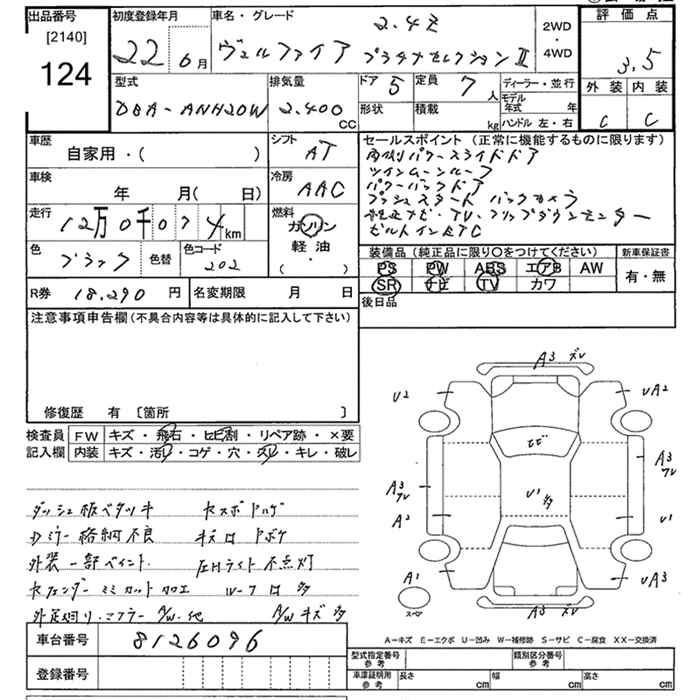 出品番号 [2140] 124
初度登録年月 22 6月
車名・グレード 2.4Z
ヴェルファイア プラチナセレクションⅡ
2WD・4WD
評価点 3.5
外装 内装
C C
型式 DBA-ANH20W
排気量 2.400 CC
ドア 5 定員 7人
形状 積載 kg
ディーラー・並行
モデル年式 年
ハンドル 左・右
車歴 自家用・( )
シフト AT
車検 年 月( 日)
冷房 AAC
走行 12万0千074km
燃料 ガソリン
軽油・
( )
色 ブラック 色替 色コード 202
R券 18.290円 名変期限 月 日
セールスポイント (正常に機能するものに限ります)
両側パワースライドドア
ツインムーンルーフ
パワーバックドア
プッシュスタート バックカメラ
純正ナビ・TV・フリップダウンモニター
ビルトインETC
装備品 (純正品に限り〇をつけてください) 新車保証書
PS PW ABS エアB AW
SR ナビ TV カワ
有・無
後日品
注意事項申告欄 (不具合内容等は具体的に記入して下さい)
修復歴 有 [箇所 ]
検査員記入欄
FW キズ・飛石・ヒビ割・リペア跡・×要
内装 キズ・汚レ・コゲ・穴・スレ・キレ・破レ
ダッシュ板ベタツキ
Dミラー格納不良 キズ
外装一部ペイント 左Hライト不点灯
ルーフ 多
A/W・他 A/Wキズ多
A3 ズレ
U2
UA2
ヒビ
A3
A3
A2
U1
多
U1
A1
スペア
UA3
A3 ズレ
A-キズ E-エクボ U-凹み W-補修跡 S-サビ C-腐食 XX-交換済
車台番号 8126096
登録番号
型式指定番号 参考 類別区分番号 参考
車庫証明用 参考 長さ cm 幅 cm 高さ cm